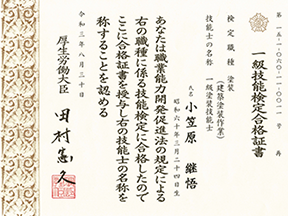 第一五-一-〇六〇-一-〇〇一一号 再
一級技能検定合格証書
検定職種 塗装
(建築塗装作業)
技能士の名称 一級塗装技能士
氏名 小笠原 継悟
昭和六十年三月二十四日生
あなたは職業能力開発促進法の規定による
右の職種に係る技能検定に合格したので
ここに合格証書を授与し右の技能士の名称を
称することを認める
令和三年八月三十日
厚生労働大臣 田村憲久